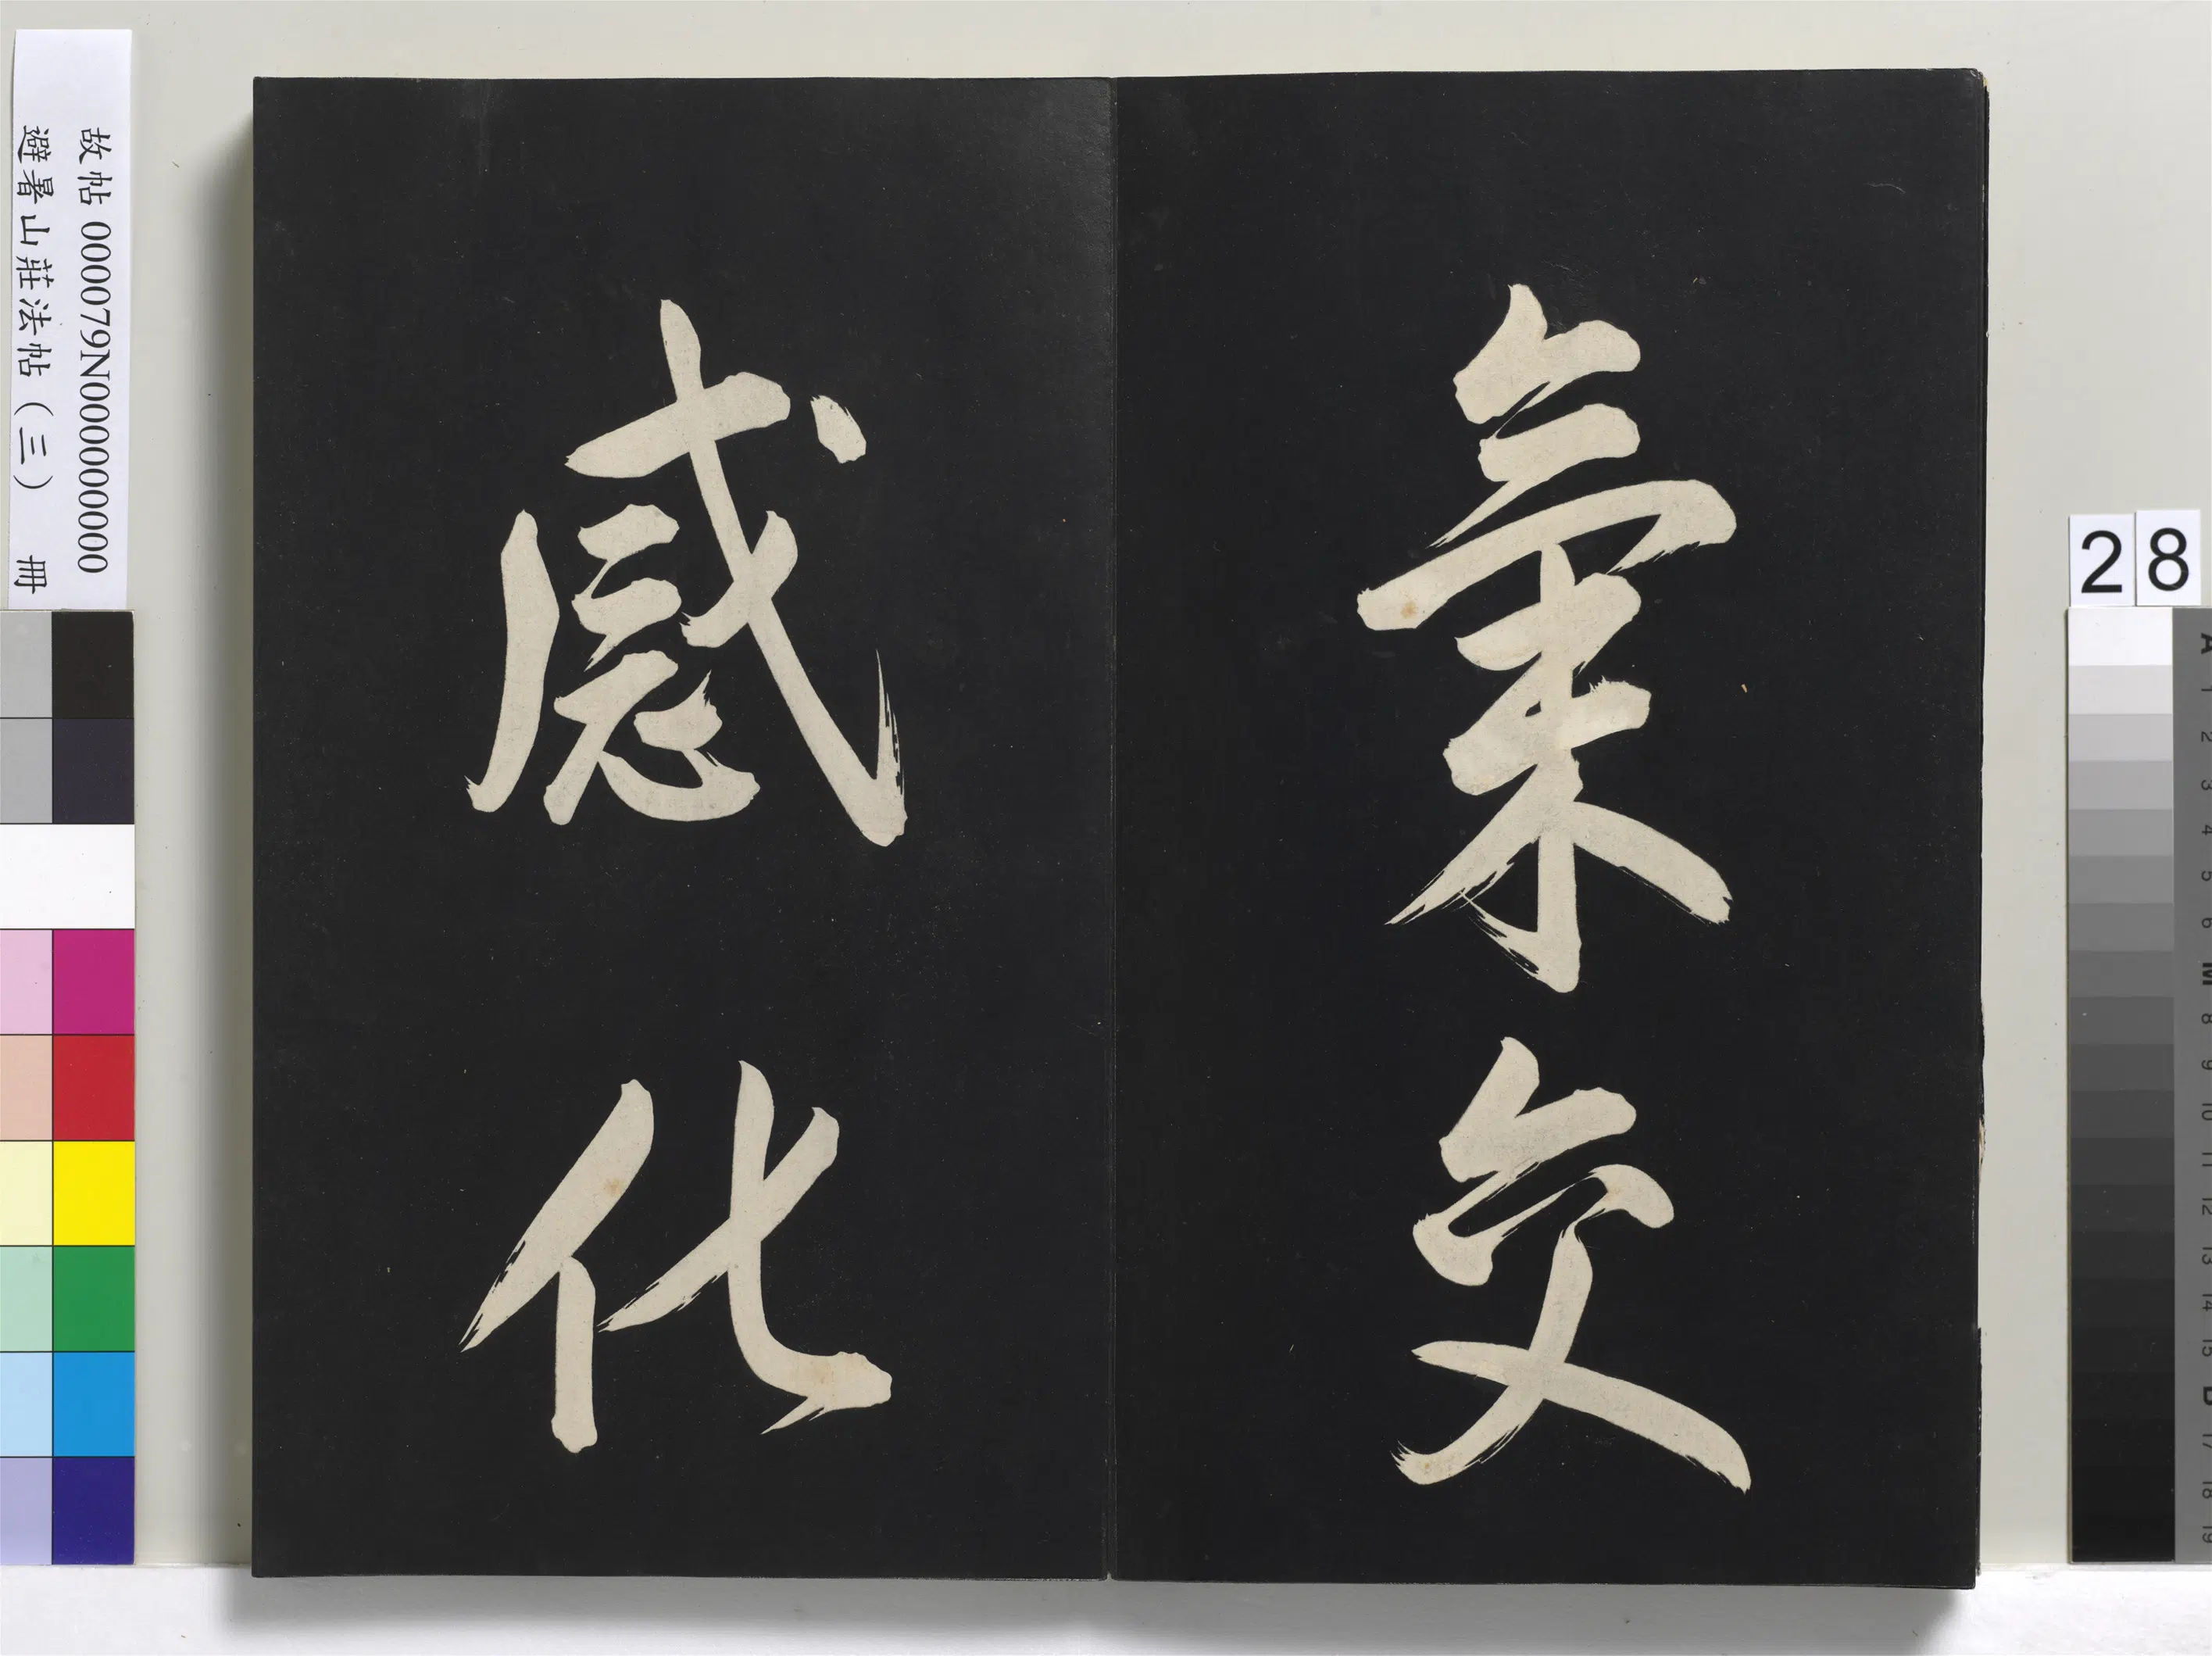 氣交
感化
故帖 000079N000000000
避暑山莊法帖（三） 冊
28
A
1
2
3
4
5
6
M
8
9
10
11
12
13
14
15
B
17
18
19